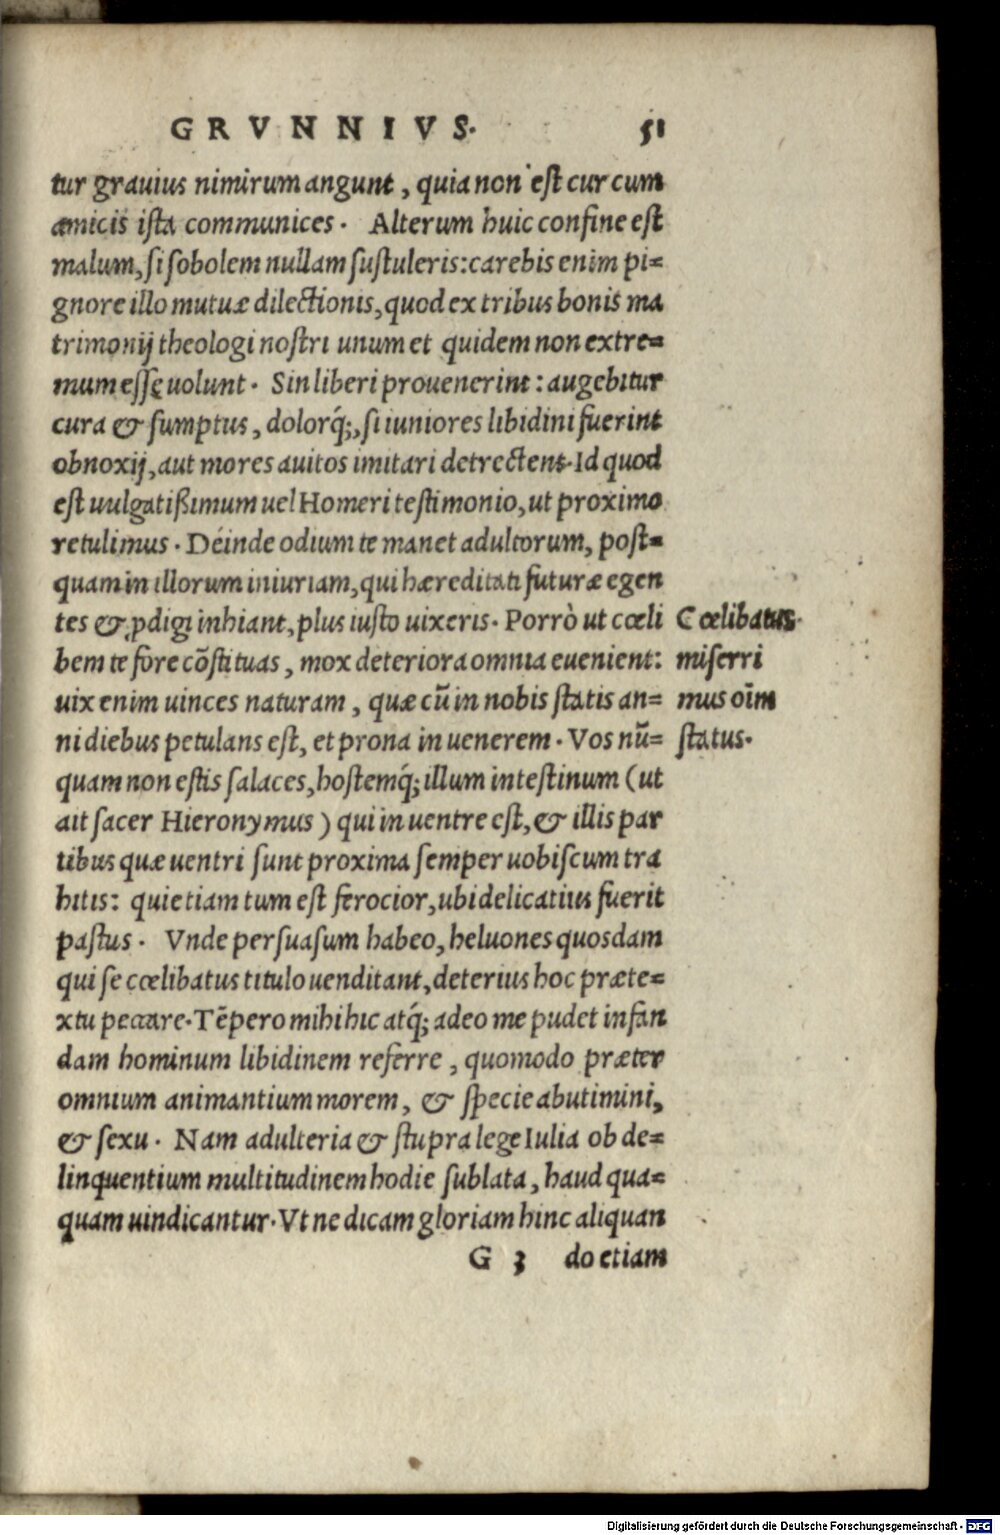 GRVNNIVS. 51
tur grauius nimirum angunt, quia non est cur cum
amicis ista communices. Alterum huic confine est
malum, si sobolem nullam sustuleris: carebis enim pi=
gnore illo mutuæ dilectionis, quod ex tribus bonis ma
trimonij theologi nostri unum et quidem non extre=
mum esse uolunt. Sin liberi prouenerint: augebitur
cura & sumptus, dolorq́;, si iuniores libidini fuerint
obnoxij, aut mores auitos imitari detrectent. Id quod
est uulgatißimum uel Homeri testimonio, ut proximo
retulimus. Deinde odium te manet adultorum, post=
quam in illorum iniuriam, qui hæreditati futuræ egen
tes & ꝓdigi inhiant, plus iusto uixeris. Porrò ut cœli
bem te fore cõstituas, mox deteriora omnia euenient:
uix enim uinces naturam, quæ cũ in nobis statis an=
ni diebus petulans est, et prona in uenerem. Vos nũ=
quam non estis salaces, hostemq́; illum intestinum (ut
ait sacer Hieronymus) qui in uentre est, & illis par
tibus quæ uentri sunt proxima semper uobiscum tra
hitis: qui etiam tum est ferocior, ubi delicatius fuerit
pastus. Vnde persuasum habeo, heluones quosdam
qui se cœlibatus titulo uenditant, deterius hoc præte=
xtu peccare. Tẽpero mihi hic atq́; adeo me pudet infan
dam hominum libidinem referre, quomodo præter
omnium animantium morem, & specie abutimini,
& sexu. Nam adulteria & stupra lege Iulia ob de=
linquentium multitudinem hodie sublata, haud qua=
quam uindicantur. Vt ne dicam gloriam hinc aliquan
G 3 do etiam
Cœlibatus
miserri
mus oĩm
status.
Digitalisierung gefördert durch die Deutsche Forschungsgemeinschaft - DFG